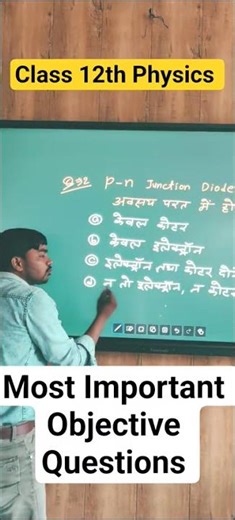 Class 12th Physics
Q32 p-n Junction Diode
अवक्षय परत में हो
(a) केवल कोटर
(b) केवल इलेक्ट्रॉन
(c) इलेक्ट्रॉन तथा कोटर दोनो
(d) न तो इलेक्ट्रॉन, न कोटर
Most Important
Objective
Questions